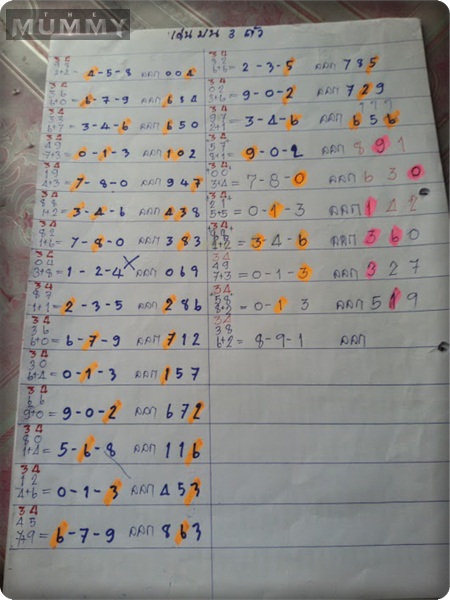 THE
MUMMY
เล่นบน 3 ตัว
34
2+2= 4-5-8 ออก 004
34
36
6+0= 6-7-9 ออก 684
34
33
6+7= 3-4-6 ออก 650
34
49
7+3= 0-1-3 ออก 102
34
19
4+3= 7-8-0 ออก 947
34
88
1+2= 3-4-6 ออก 438
34
82
1+6= 7-8-0 ออก 383
34
04
3+8= 1-2-4 ออก 069
34
87
1+1= 2-3-5 ออก 286
34
36
6+0= 6-7-9 ออก 712
34
30
6+4= 0-1-3 ออก 157
34
66
9+0= 9-0-2 ออก 672
34
80
1+4= 5-6-8 ออก 116
34
12
4+6= 0-1-3 ออก 453
34
45
7+9= 6-7-9 ออก 863
34
6+6= 2-3-5 ออก 785
34
02
3+6= 9-0-2 ออก 729
34
97
2+1= 3-4-6 ออก 656
777
34
57
8+1= 9-0-2 ออก 891
34
00
3+4= 7-8-0 ออก 630
34
21
5+5= 0-1-3 ออก 142
34
= 3-4-6 ออก 360
34
49
7+3= 0-1-3 ออก 327
34
58
8+2= 0-1 3 ออก 519
32
38
6+2= 8-9-1 ออก